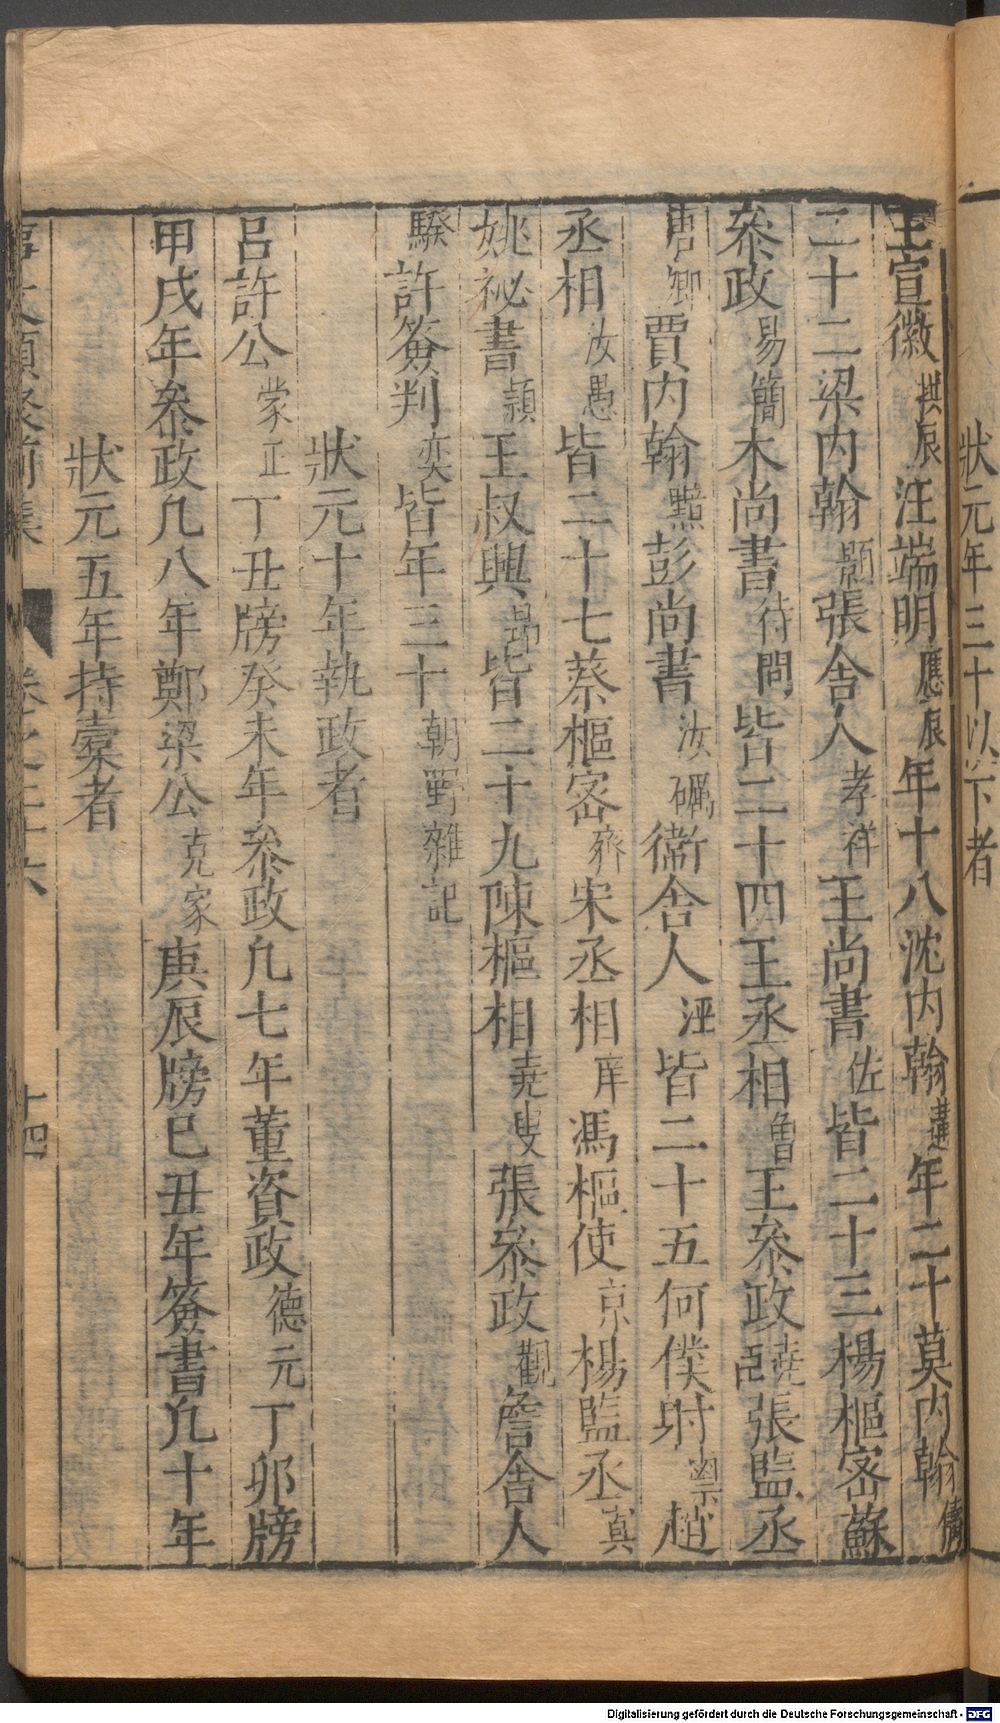 狀元年三十以下者
王宣徽拱辰汪端明應辰年十八沈内翰遘年二十莫内翰儔
二十二梁内翰顥張舍人孝祥王尚書佐皆二十三楊樞密蘇
叅政易簡木尚書待問皆二十四王丞相曾王叅政堯臣張監丞
唐卿賈内翰黯彭尚書汝礪衞舍人涇皆二十五何僕射㮚趙
丞相汝愚皆二十七蔡樞密齊宋丞相庠馮樞使京楊監丞寘
姚祕書穎王叔興昂皆二十九陳樞相堯叟張叅政觀詹舍人
騤許簽判奕皆年三十朝野雜記
狀元十年執政者
呂許公蒙正丁丑牓癸未年叅政凢七年董資政德元丁卯牓
甲戌年叅政凢八年鄭梁公克家庚辰牓已丑年簽書凢十年
狀元五年持槖者
事文類聚前集 卷之二十六 十四
Digitalisierung gefördert durch die Deutsche Forschungsgemeinschaft - DFG